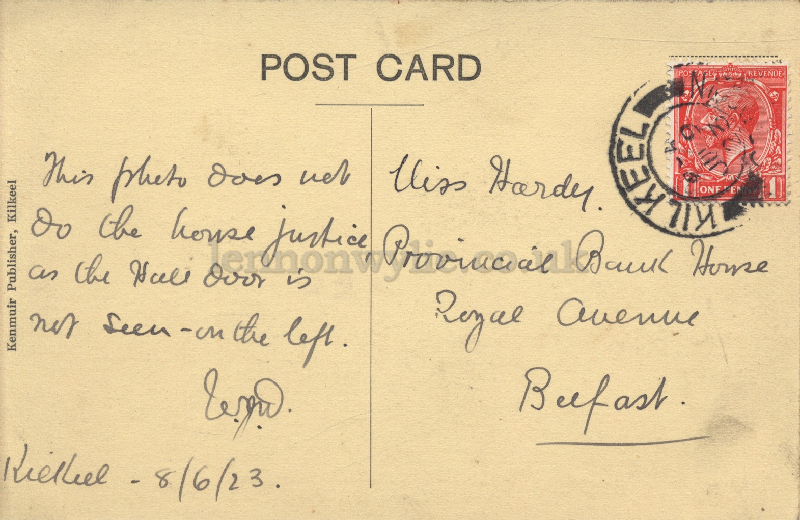 POST CARD
This photo does not
do the house justice
as the Hall door is
not seen - on the left.
Kilkeel - 8/6/23.
Miss Hardy.
Provincial Bank House
Royal Avenue
Belfast.
Kenmuir Publisher, Kilkeel
POSTAGE REVENUE
ONE PENNY
KILKEEL
KILKEEL
lennonwylie.co.uk